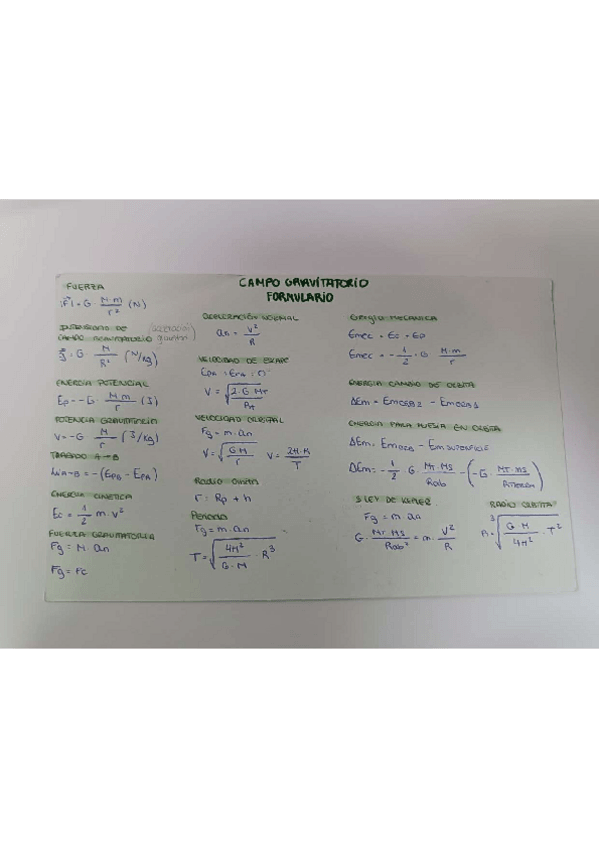 CAMPO GRAVITATORIO
FORMULARIO
FUERZA
|F| = G · M·m / r² (N)
INTENSIDAD DE (aceleración
CAMPO GRAVITATORIO gravitat)
g = G · M / R² (N/Kg)
ENERGIA POTENCIAL
Ep = - G · M·m / r (J)
POTENCIA GRAVITATORIA
V = - G M / r (J/Kg)
TRABAJO A→B
WA→B = -(EpB - EpA)
ENERGIA CINETICA
Ec = 1/2 m · v²
FUERZA GRAVITATORIA
Fg = M · an
Fg = Fc
ACELERACIÓN NORMAL
an = v² / R
VELOCIDAD DE ESCAPE
V = √(2·G·MT / RT)
VELOCIDAD ORBITAL
Fg = m · an
V = √(G·M / r) V = 2π·R / T
RADIO ORBITA
r = Rp + h
PERIODO
Fg = m · an
T = √(4π² / G·M · R³)
ENERGIA MECANICA
Emec = Ec + Ep
Emec = - 1/2 · G · M·m / r
ENERGIA CAMBIO DE ORBITA
ΔEm = EmORB2 - EmORB1
ENERGIA PARA PUESTA EN ORBITA
ΔEm = EmORB - EmSUPERFICIE
ΔEm = - 1/2 · G · MT·MS / Rorb - (- G · MT·MS / RTIERRA)
3 LEY DE KEPLER
Fg = m · an
G · MT·MS / Rorb² = m · v² / R
RADIO ORBITA
R = ∛(G·M / 4π² · T²)